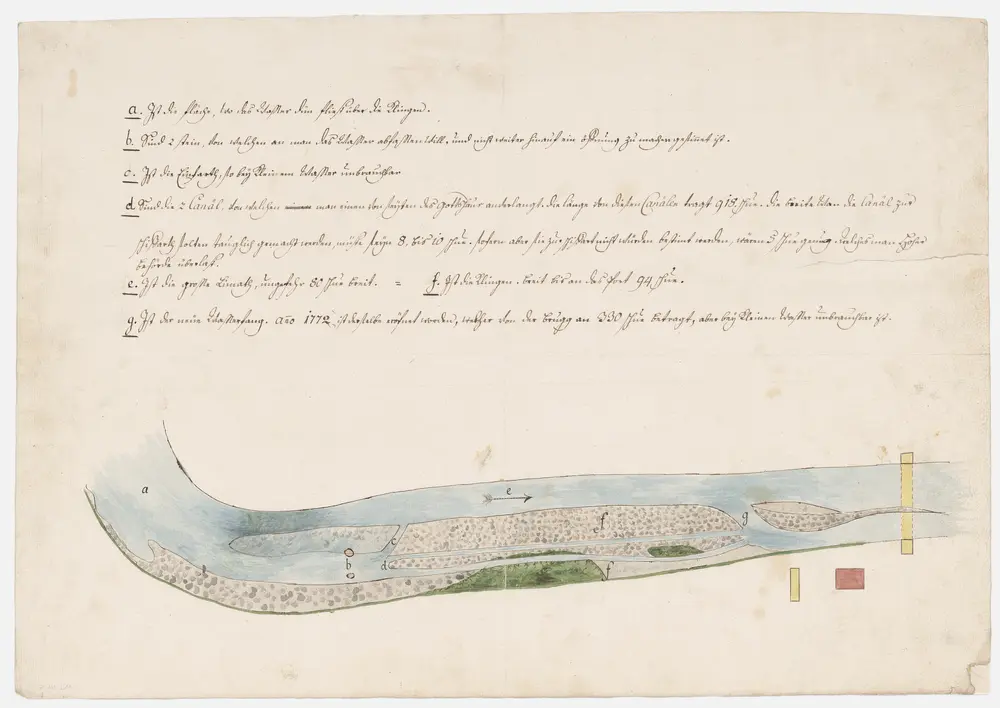 a. Ist die fläche, wo das Wasser hin fliest über die Klingen.
b. Sind 2 stein, von welchen an man das Wasser abfassen will, und nicht weiter hinauf ein öffnung zu machen gesinnet ist.
c. Ist die Einfarth, so bey kleinem Wasser unbrauchbar
d Sind die 2 Canäl, von welchen man einen von seyten des anverlangt. die länge von diesen Canälen tragt 918. schue. die breite wan die Canäl zur
schiffarth solten tauglich gemacht werden, müste seyn 8. bis 10 schue. sofern aber sie zur schiffart nicht würden bestimt werden, wären 5 schue genug. welches man hoher
behörde überlast.
e. Ist die grosse Limath, ungefehr 80 schue breit. = f. Ist die Klingen. breit bis an das Port 94 schue.
g. Ist der neue Wasserfang. año 1772 ist derselbe eröfnet worden, welcher von der brugg an 330 schue betragt, aber bey kleinen Wasser unbrauchbar ist.
a
e
f
g
c
b
d
f